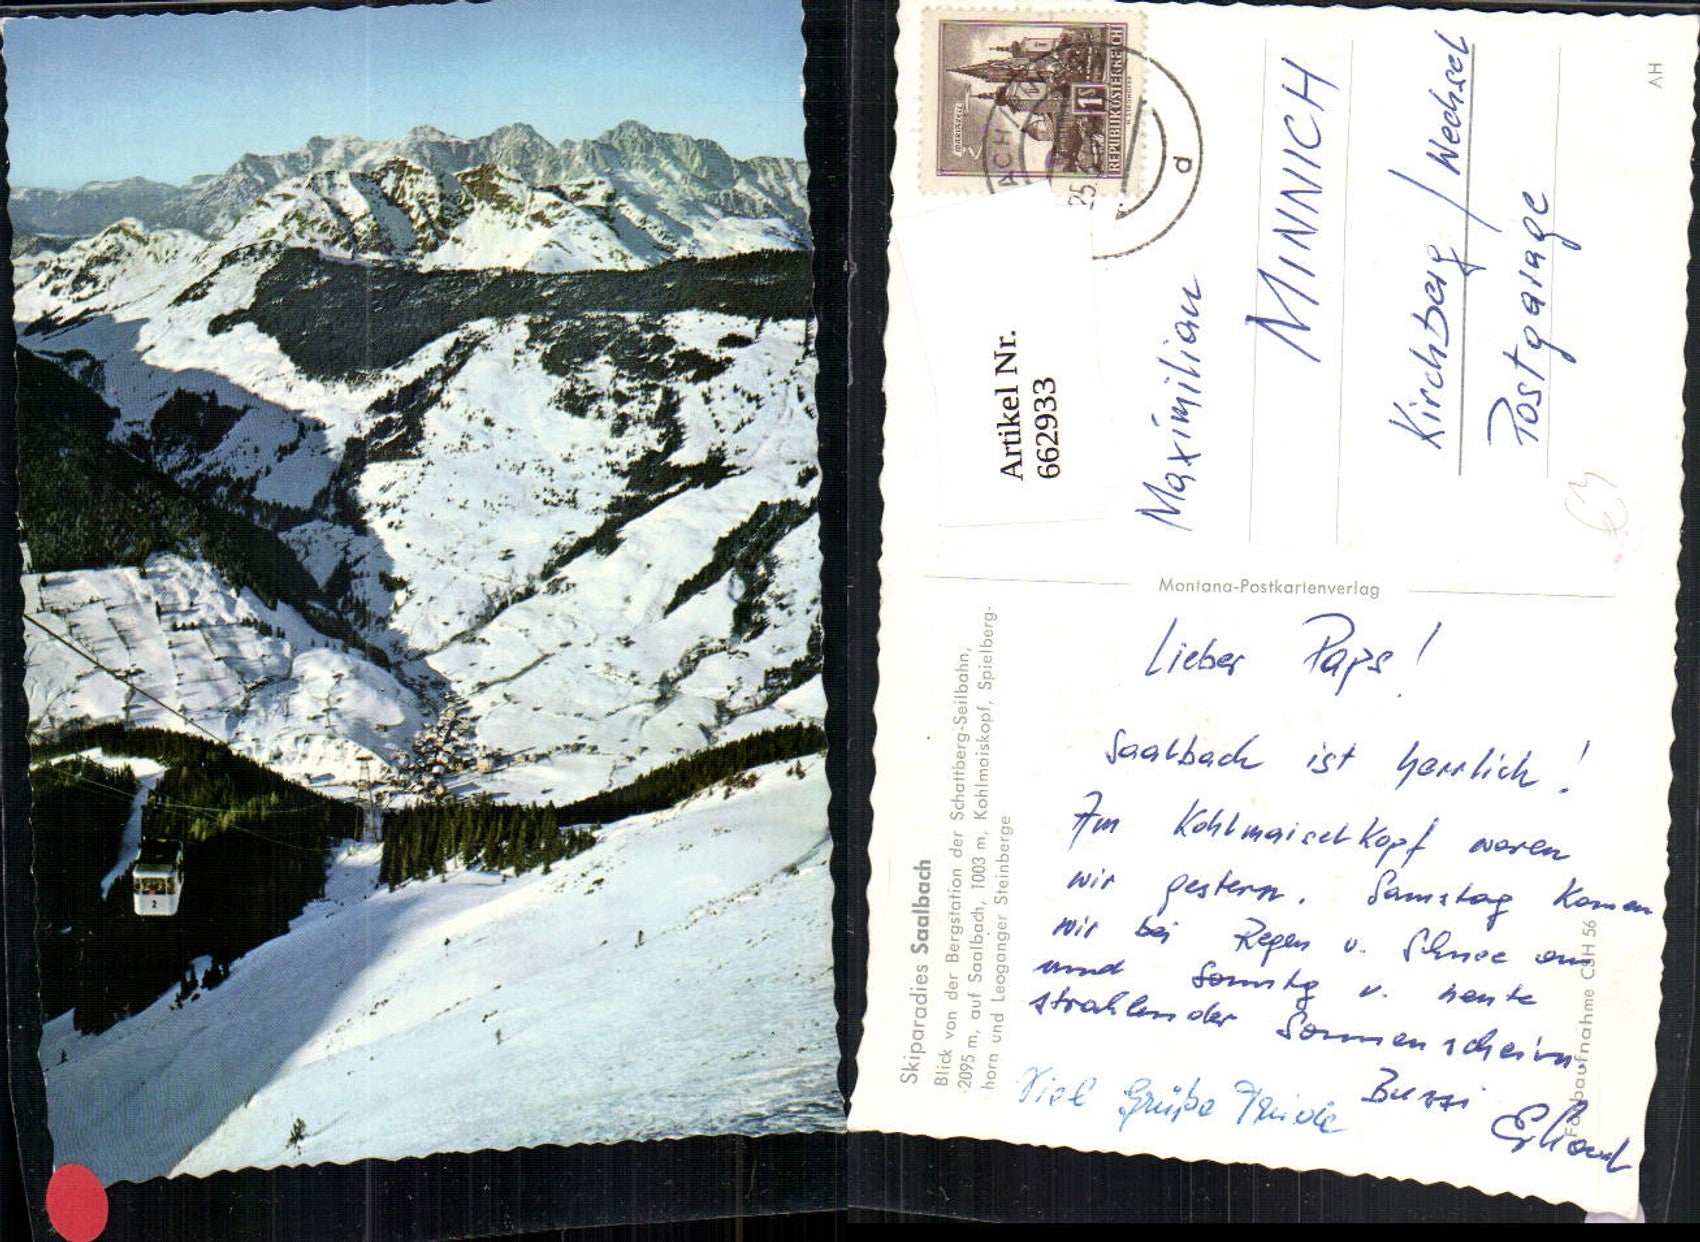 2
MARIAZELL
1S
REPUBLIK ÖSTERREICH
25.
d
Artikel Nr.
662933
Maximilian
MINNICH
Kirchberg / Wechsel
Postgarage
AH
Montana-Postkartenverlag
Skiparadies Saalbach
Blick von der Bergstation der Schattberg-Seilbahn,
2095 m, auf Saalbach, 1003 m, Kohlmaiskopf, Spielberg-
horn und Leoganger Steinberge
Farbaufnahme CSH 56
Lieber Paps!
Saalbach ist herrlich!
Am Kohlmaiselkopf waren
wir gestern. Samstag kamen
wir bei Regen u. Schnee an
und Sonntg u. heute
strahlender Sonnenschein.
Bussi
Viel Grüße